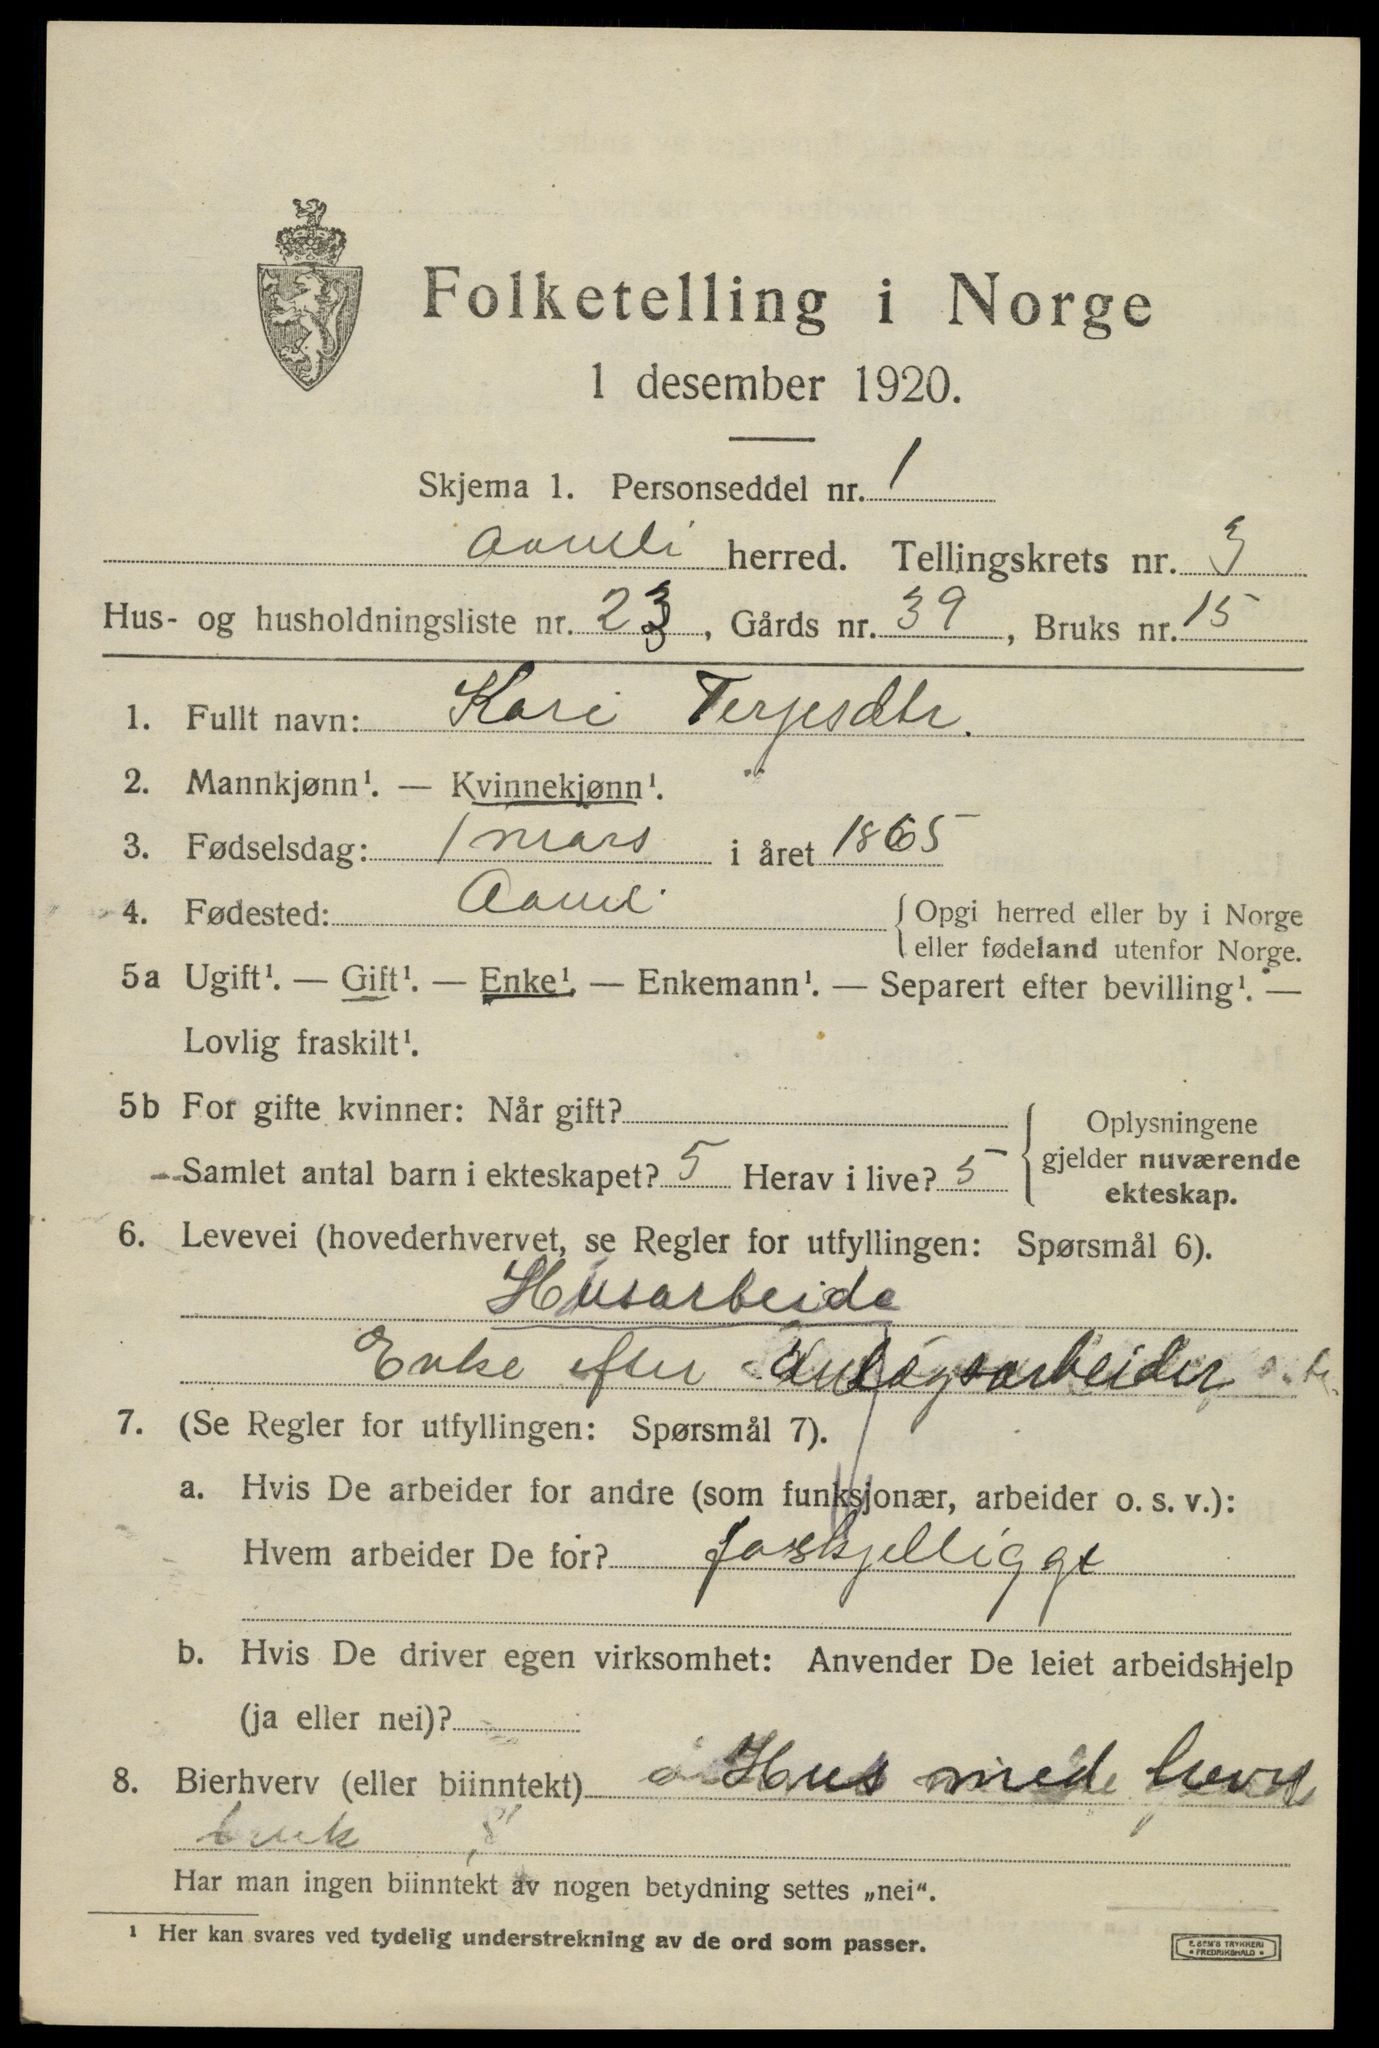 Folketelling i Norge
1 desember 1920.
Skjema 1. Personseddel nr. 1
Aamli herred. Tellingskrets nr. 3
Hus- og husholdningsliste nr. 23, Gårds nr. 39, Bruks nr. 15
1. Fullt navn: Kari Terjesdtr.
2. Mannkjønn¹. — Kvinnekjønn¹.
3. Fødselsdag: 1 mars i året 1865
4. Fødested: Aamli { Opgi herred eller by i Norge
eller fødeland utenfor Norge.
5a Ugift¹. — Gift¹. — Enke¹. — Enkemann¹. — Separert efter bevilling¹. —
Lovlig fraskilt¹.
5b For gifte kvinner: Når gift? { Oplysningene
gjelder nuværende
ekteskap.
Samlet antal barn i ekteskapet? 5 Herav i live? 5
6. Levevei (hovederhvervet, se Regler for utfyllingen: Spørsmål 6).
Husarbeide
Enke efter Anlægsarbeider
7. (Se Regler for utfyllingen: Spørsmål 7).
a. Hvis De arbeider for andre (som funksjonær, arbeider o. s. v.):
Hvem arbeider De for? forskjelligge
b. Hvis De driver egen virksomhet: Anvender De leiet arbeidshjelp
(ja eller nei)?
8. Bierhverv (eller biinntekt) Hus med
bruk
Har man ingen biinntekt av nogen betydning settes „nei“.
¹ Her kan svares ved tydelig understrekning av de ord som passer.
E. SEM'S TRYKKERI
• FREDRIKSHALD •